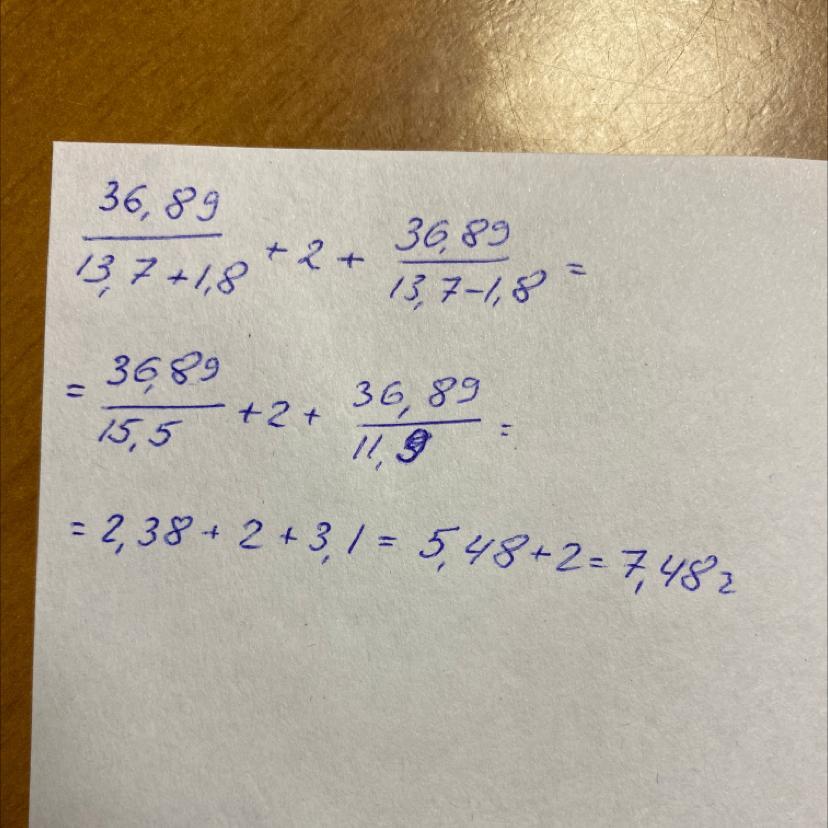 36,89/13,7+1,8 + 2 + 36,89/13,7-1,8 =
= 36,89/15,5 + 2 + 36,89/11,9 =
= 2,38 + 2 + 3,1 = 5,48 + 2 = 7,48 ч